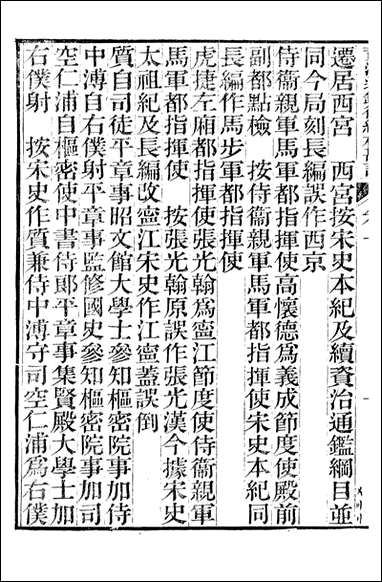 遷居西宮　西宮按宋史本紀及續資治通鑑綱目並
同今局刻長編誤作西京
侍衞親軍馬軍都指揮使高懷德爲義成節度使殿前
副都點檢　按侍衞親軍馬軍都指揮使宋史本紀同
長編作馬步軍都指揮使
虎捷左廂都指揮使張光翰爲寧江節度使侍衞親軍
馬軍都指揮使　按張光翰原誤作張光漢今據宋史
太祖紀及長編改寧江宋史作江寧蓋誤倒
質自司徒平章事昭文館大學士參知樞密院事加侍
中溥自右僕射平章事監修國史參知樞密院事加司
空仁浦自樞密使中書侍郎平章事集賢殿大學士加
右僕射　按宋史作質兼侍中溥守司空仁浦爲右僕